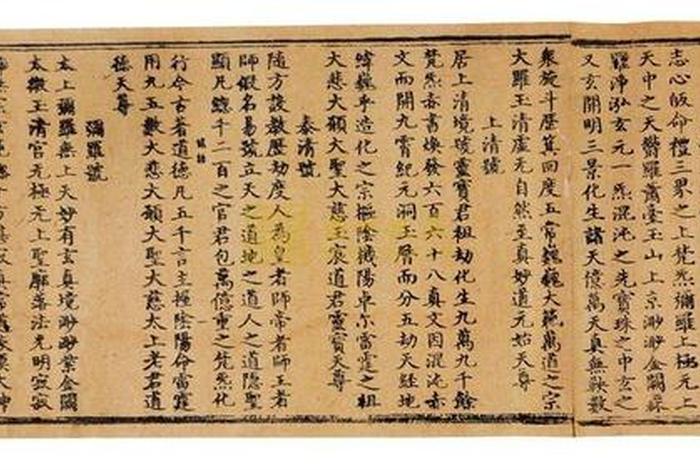 志心皈命禮三界之上梵炁彌羅上極无上
天中之天欝羅蕭臺玉山上京渺渺金闕森
羅淨泓玄元一炁混沌之先寶珠之中玄之
又玄開明三景化生諸天億萬天真無鞅數
衆旋斗歷箕回度五常巍巍大範萬道之宗
大羅玉清虛无自然至真妙道元始天尊
上清號
居上清境號靈寶君祖劫化生九萬九千餘
梵炁赤書煥發六百六十八真文因混沌赤
文而開九霄紀元洞玉曆而分五劫天經地
緯巍乎造化之宗樞陰機陽卓尔雷霆之祖
大悲大願大聖大慈玉宸道君靈寶天尊
泰清號
随方設教歷劫度人為皇者師帝者師王者
師假名易號立天之道地之道人之道隱聖
顯凡緫千二百之官君包萬億重之梵炁化
行今古著道德凡五千言主握陰陽命雷霆
用九五數大悲大願大聖大慈太上老君道
德天尊
彌羅號
太上彌羅無上天妙有玄真境渺渺紫金闕
太微玉清宮无極无上聖廓落法光明寂寂